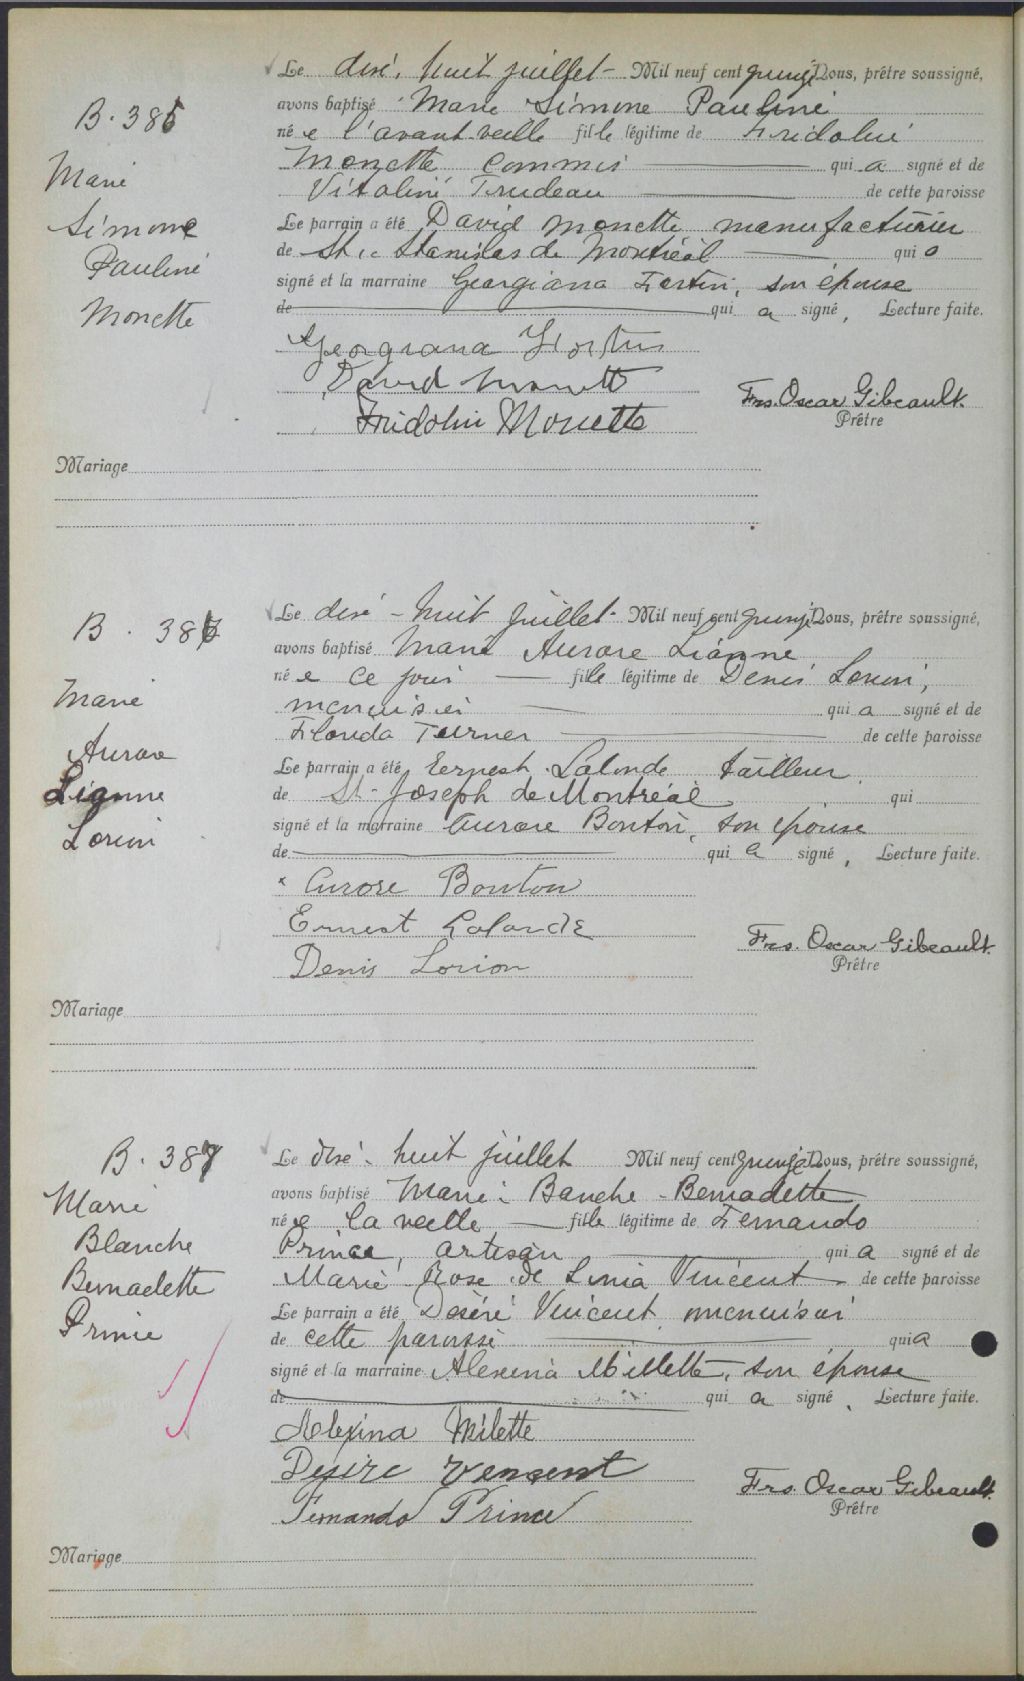 B. 385
Marie
Simone
Pauline
Monette
Le dix-huit juillet - Mil neuf cent quinze Nous, prêtre soussigné,
avons baptisé Marie Simone Pauline
né e l'avant-veille fille légitime de Fridolin
Monette commis qui a signé et de
Vitaline Trudeau de cette paroisse
Le parrain a été David Monette manufacturier
de St. Stanislas de Montréal qui a
signé et la marraine Georgiana Fortin, son épouse
de qui a signé, Lecture faite.
Georgiana Fortin
David Monette
Fridolin Monette
Frs. Oscar Gibeault.
Prêtre
Mariage
B. 386
Marie
Aurore
Lianne
Lorion
Le dix-huit juillet - Mil neuf cent quinze Nous, prêtre soussigné,
avons baptisé Marie Aurore Lianne
né e ce jour fille légitime de Denis Lorion,
menuisier qui a signé et de
Florida Turner de cette paroisse
Le parrain a été Eernest Lalonde tailleur
de St-Joseph de Montréal qui
signé et la marraine Aurore Bonton, son épouse
de qui a signé, Lecture faite.
Aurore Bouton
Ernest Lalonde
Denis Lorion
Frs. Oscar Gibeault.
Prêtre
Mariage
B. 387
Marie
Blanche
Bernadette
Prince
Le dix-huit juillet Mil neuf cent quinze Nous, prêtre soussigné,
avons baptisé Marie Banche - Bernadette
né e la veille fille légitime de Fernando
Prince, artisan qui a signé et de
Marie Rose de Vincent de cette paroisse
Le parrain a été Désiré Vincent menuisier
de cette paroisse qui a
signé et la marraine Alexina Millette, son épouse
de qui a signé, Lecture faite.
Alexina Milette
Desire Vensent
Fernando Prince
Frs. Oscar Gibeault.
Prêtre
Mariage